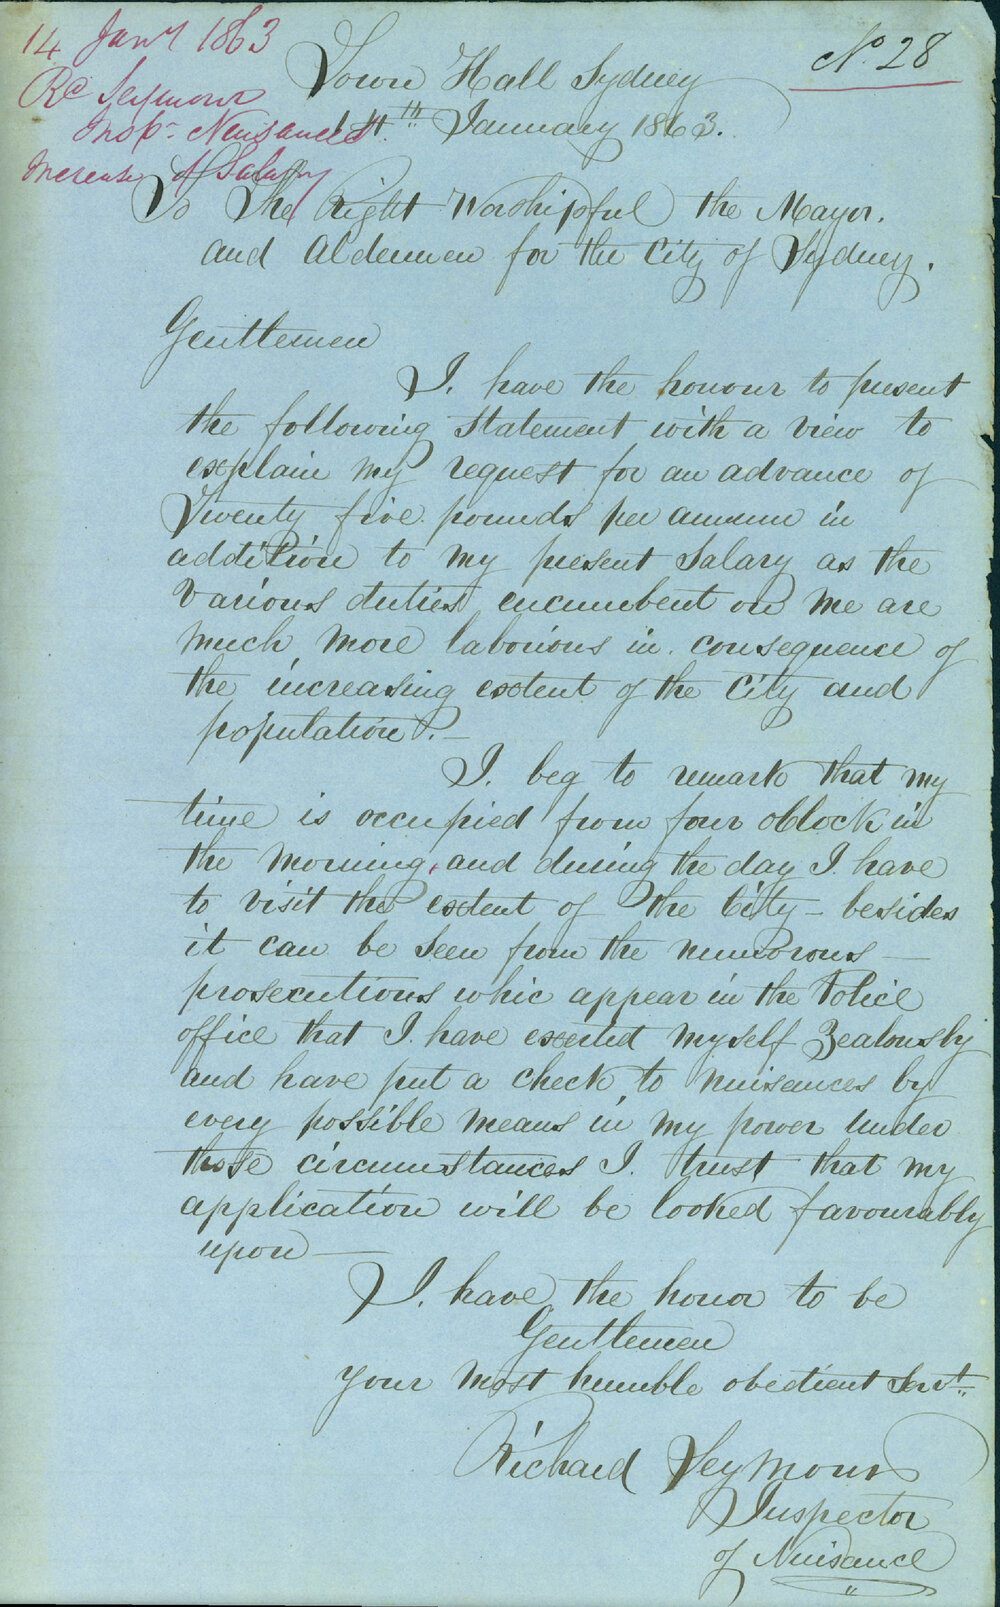 14 Jany 1863
Rd Seymour
Inspr Nuisances
Increase of Salary
No. 28
Town Hall Sydney
14th January 1863.
To The Right Worshipful the Mayor.
and Aldermen for the City of Sydney.
Gentlemen
I. have the honour to present
the following statement with a view to
explain my request for an advance of
Twenty five pounds per annum in
addition to my present Salary as the
various duties encumbent on me are
much more laborious in consequence of
the increasing extent of the City and
population.—
I. beg to remark that my
time is occupied from four oClock in
the Morning, and during the day I. have
to visit the extent of the City — besides
it can be seen from the numorous —
prosecutions whic appear in the Police
office that I. have exerted myself Zealously
and have put a check to nuisances by
every possible means in my power under
those circumstances I. trust that my
application will be looked favourably
upon —
I. have the honor to be
Gentlemen
your most humble obedient Servt.
Richard Seymour
Inspector
of Nuisance